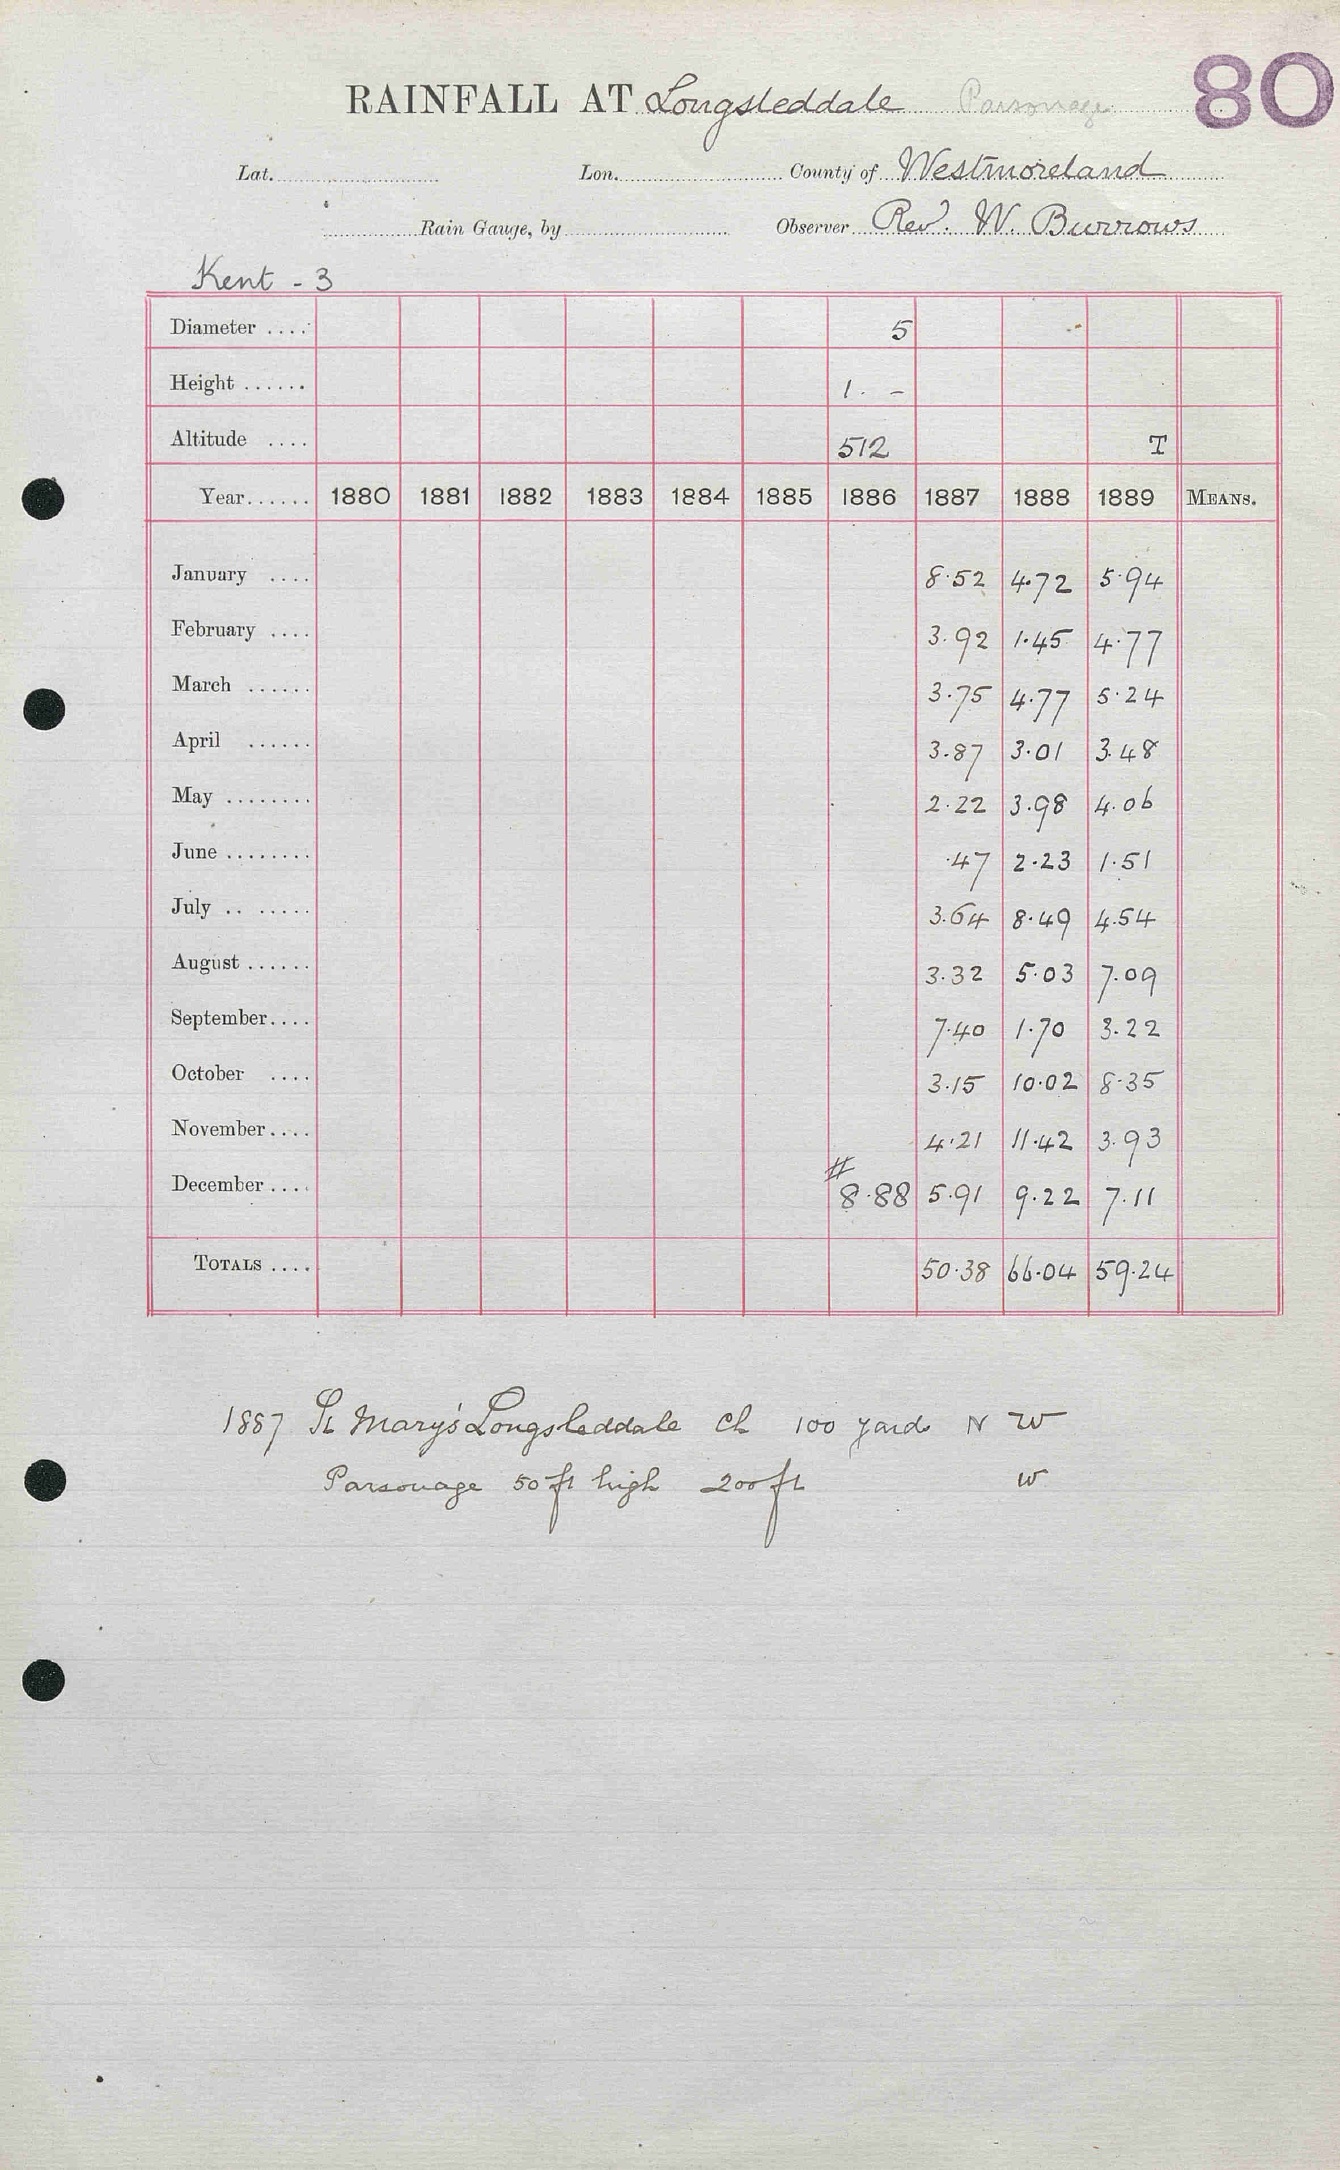 80
RAINFALL AT Longsleddale Parsonage
Lat. Lon. County of Westmoreland
Rain Gauge, by Observer Rev. W. Burrows
Kent - 3
Diameter .... 5
Height ...... 1. -
Altitude .... 512 T
Year...... 1880 1881 1882 1883 1884 1885 1886 1887 1888 1889 MEANS.
January .... 8.52 4.72 5.94
February .... 3.92 1.45 4.77
March ...... 3.75 4.77 5.24
April ...... 3.87 3.01 3.48
May ........ 2.22 3.98 4.06
June ........ .47 2.23 1.51
July .. ..... 3.64 8.49 4.54
August ...... 3.32 5.03 7.09
September.... 7.40 1.70 3.22
October .... 3.15 10.02 8.35
November.... 4.21 11.42 3.93
#
December .... 8.88 5.91 9.22 7.11
TOTALS .... 50.38 66.04 59.24
1887 St Mary's Longsleddale Ch 100 yards N W
Parsonage 50 ft high 200 ft W